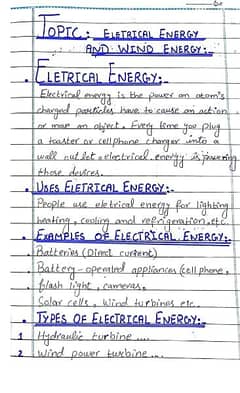 TOPIC: ELETRICAL ENERGY
AND WIND ENERGY:-
ELETRICAL ENERGY:-
Electrical energy is the power an atom's
charged particles have to cause an action
or move an object. Every time you plug
a toaster or cellphone charger into a
wall outlet electrical energy is powering
those devices.
USES ELETRICAL ENERGY:-
People use eletrical energy for lighting
heating, cooling and refrigeration, etc.
EXAMPLES OF ELECTRICAL ENERGY:-
Batteries (Direct current)
Battery-operated appliances (cell phone,
flash light, cameras,
Solar cells, Wind turbines etc.
TYPES OF ELECTRICAL ENERGY:-
1 Hydraulic turbine ....
2 Wind power turbine ....